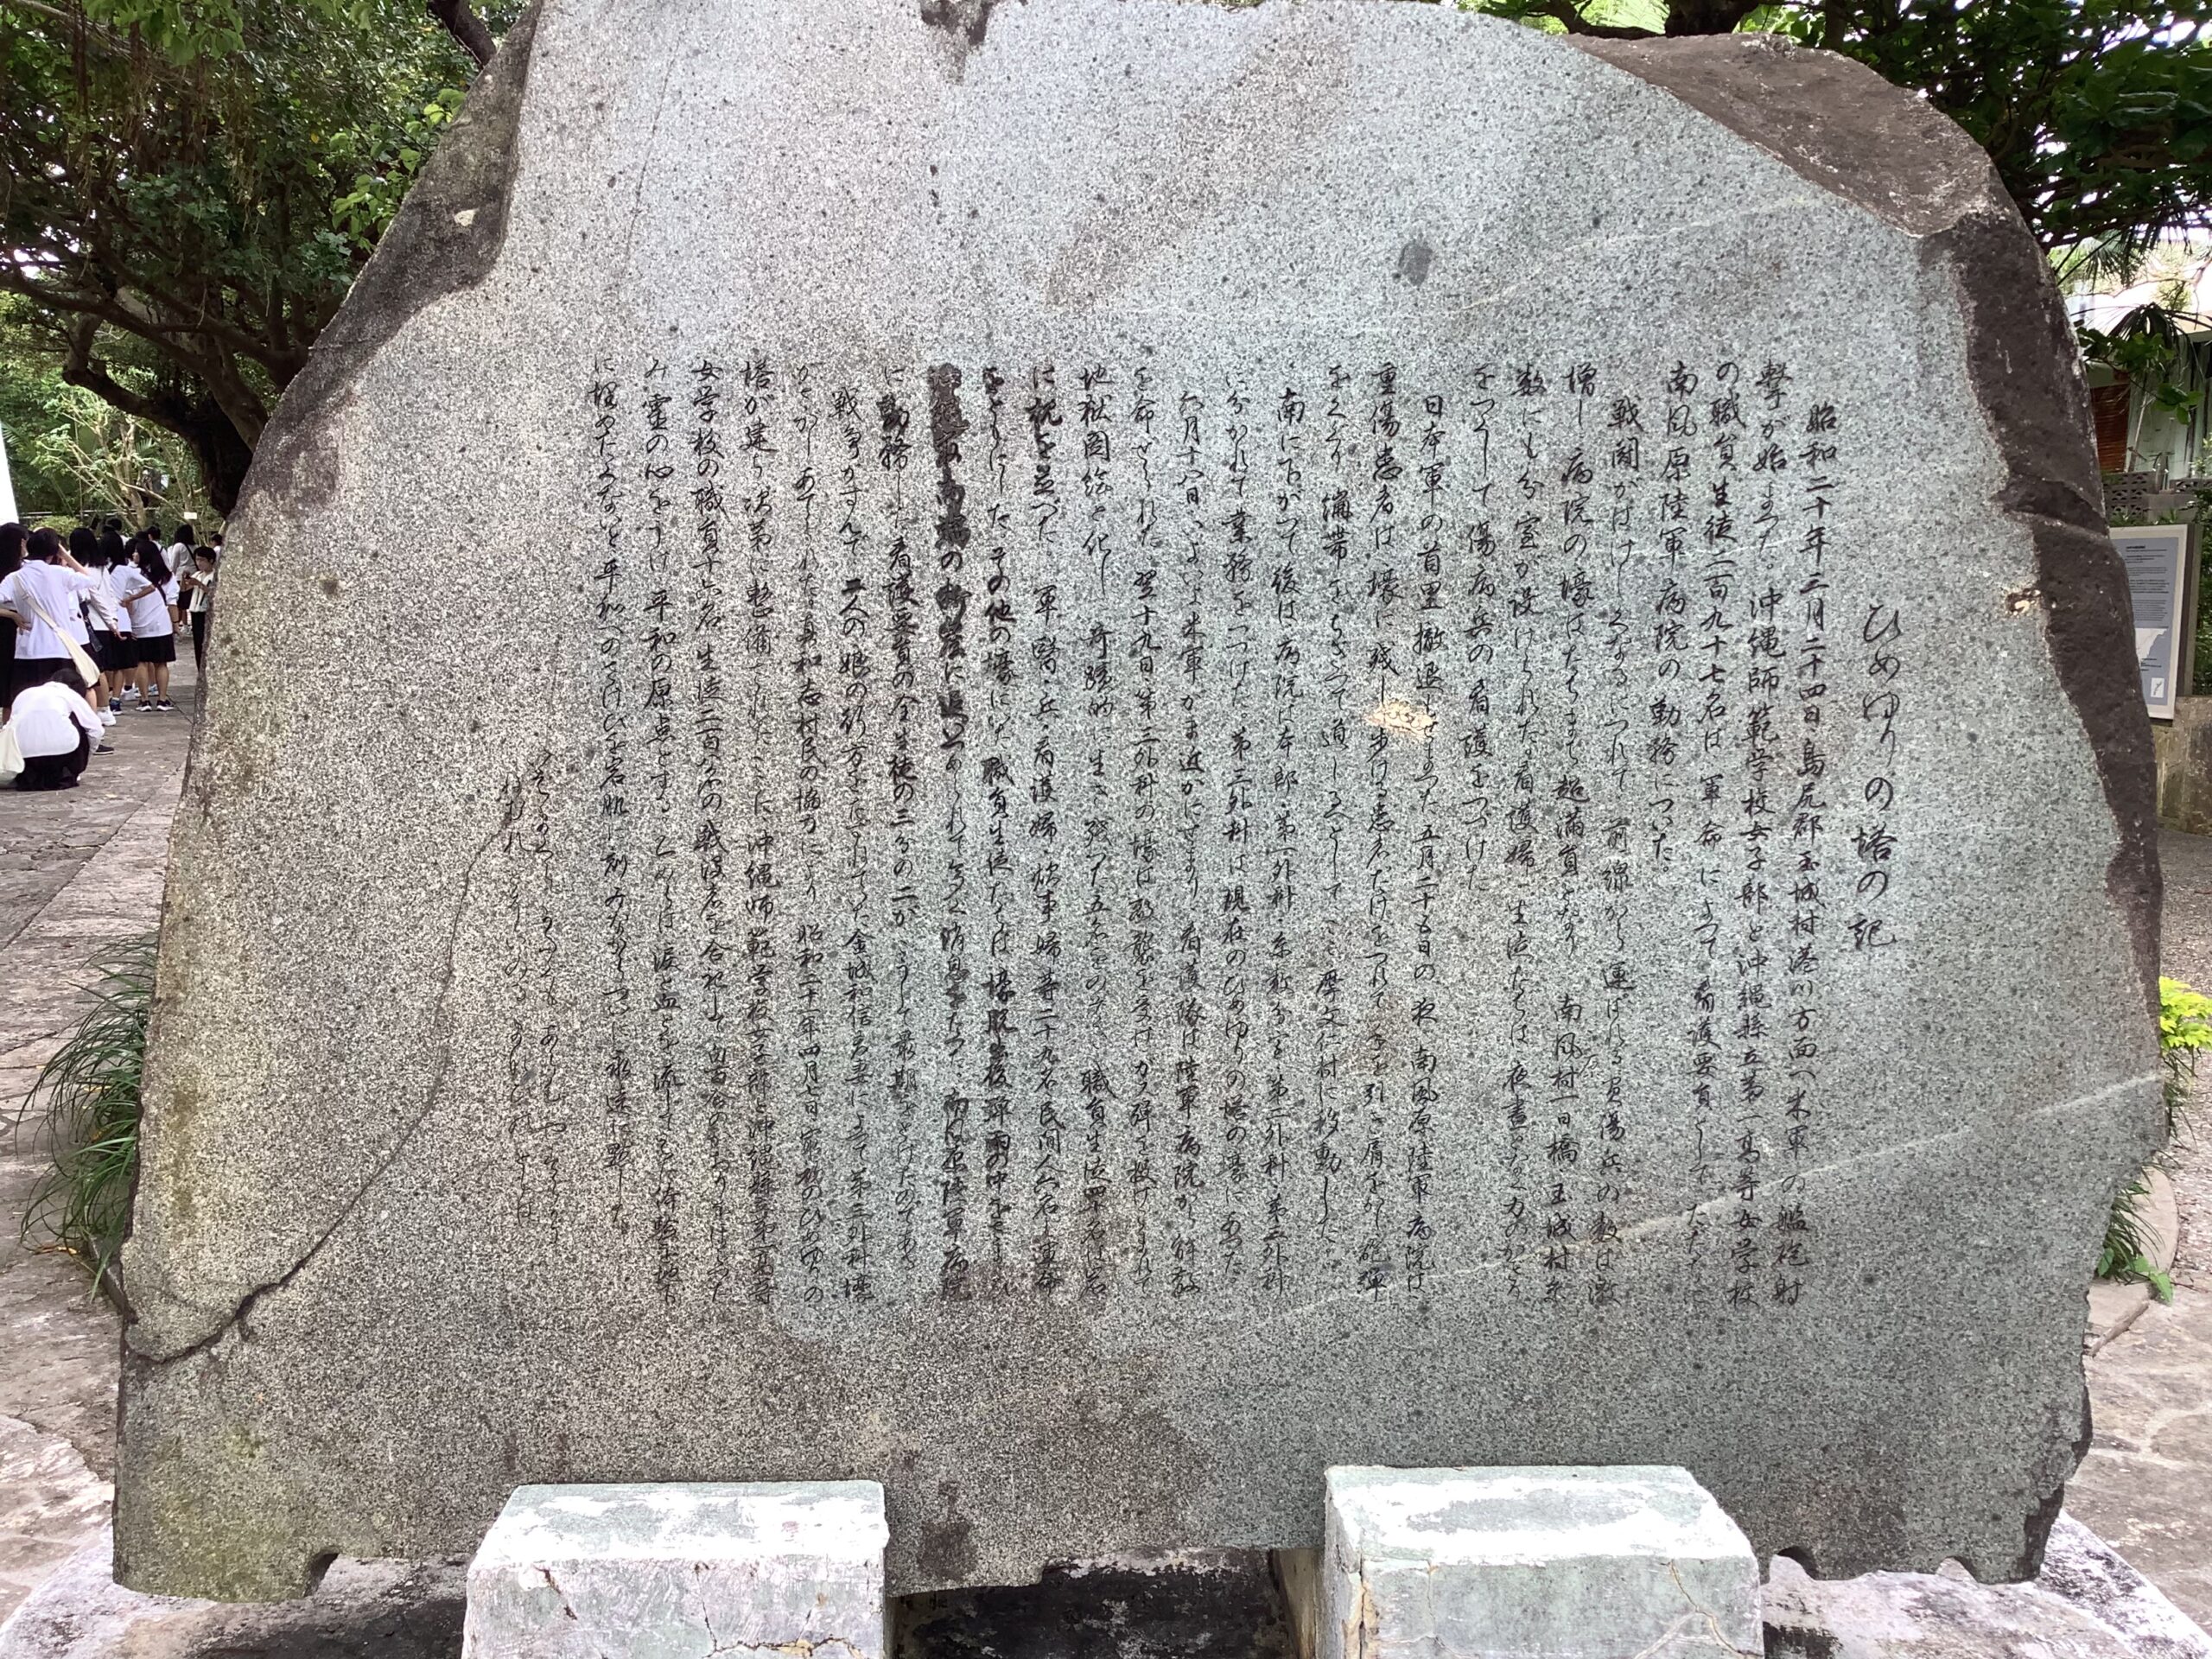 ひめゆりの塔の記
昭和二十年三月二十四日島尻郡玉城村港川方面へ米軍の艦砲射
撃が始まった。沖縄師範学校女子部と沖縄縣立第一高等女学校
の職員生徒二百九十七名は軍命によって看護要員としてただちに
南風原陸軍病院の勤務についた。
戦闘がはげしくなるにつれて前線から運ばれる負傷兵の数は激
増し病院の壕はたちまち超満員となり南風村一日橋玉城村糸
数にも分室が設けられた看護婦生徒たちは夜昼となく力のかぎり
をつくして傷病兵の看護をつづけた
日本軍の首里撤退もせまった五月二十五日の夜南風原陸軍病院は
重傷患者は壕に残し歩ける患者だけをつれて手を引き肩をかし砲弾
をくぐり繃帯をちぎって道しるべとしてここ摩文仁村に移動した
南に下がって後は病院は本部第一外科糸数分室第二外科第三外科
に分かれて業務をつづけた。第三外科は現在のひめゆりの塔の壕にあった
六月十八日いよいよ米軍がま近かにせまり看護隊は陸軍病院から解散
を命ぜられた翌十九日第三外科の壕は敵襲を受けガス弾を投げこまれて
地獄図絵と化し奇蹟的に生き残った五名をのぞき職員生徒四十名は岩
に枕を並べた。軍醫・兵・看護婦・炊事婦等二十九名民間人六名も運命
をともにした。その他の壕にいた職員生徒たちは壕脱出後弾雨の中をさま
南端の断崖に追いつめられて多く消息をたった。南風原陸軍病院
に勤務した看護要員の全生徒の三分の二がこうして最期をとげたのである
戦争がすんで二人の娘の行方をたずねていた金城和信夫妻によって第三外科壕
がさがしあてられた真和志村民の協力により昭和二十一年四月七日最初のひめゆりの
塔が建ち次第に整備されたここに沖縄師範学校女子部と沖縄縣立第一高等
女学校の職員十六名生徒二百余名の戦没者を合祀して
み霊の心をうけ平和の原点とする乙女らは涙と血とを流してえた体験を地下
に埋めたくないと平和へのさけびを岩肌に刻みながらついに永遠に黙した